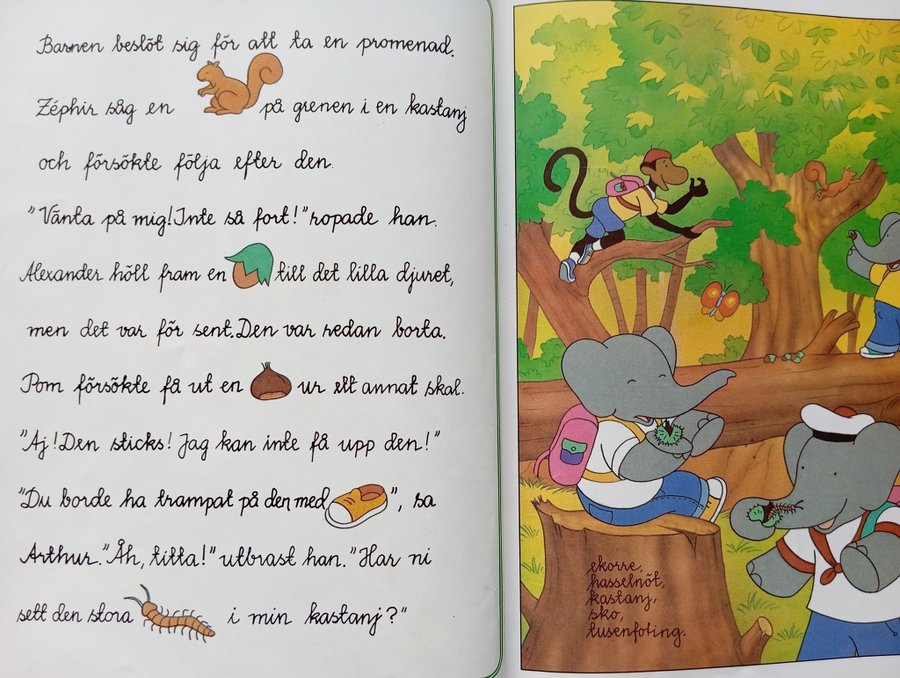 Barnen beslöt sig för att ta en promenad.
Zéphir såg en på grenen i en kastanj
och försökte följa efter den.
"Vänta på mig! Inte så fort!" ropade han.
Alexander höll fram en till det lilla djuret,
men det var för sent. Den var redan borta.
Pom försökte få ut en ur ett annat skal.
"Aj! Den sticks! Jag kan inte få upp den!"
"Du borde ha trampat på den med ", sa
Arthur. "Åh, titta!" utbrast han. "Har ni
sett den stora i min kastanj?"
ekorre,
hasselnöt,
kastanj,
sko,
tusenfoting.